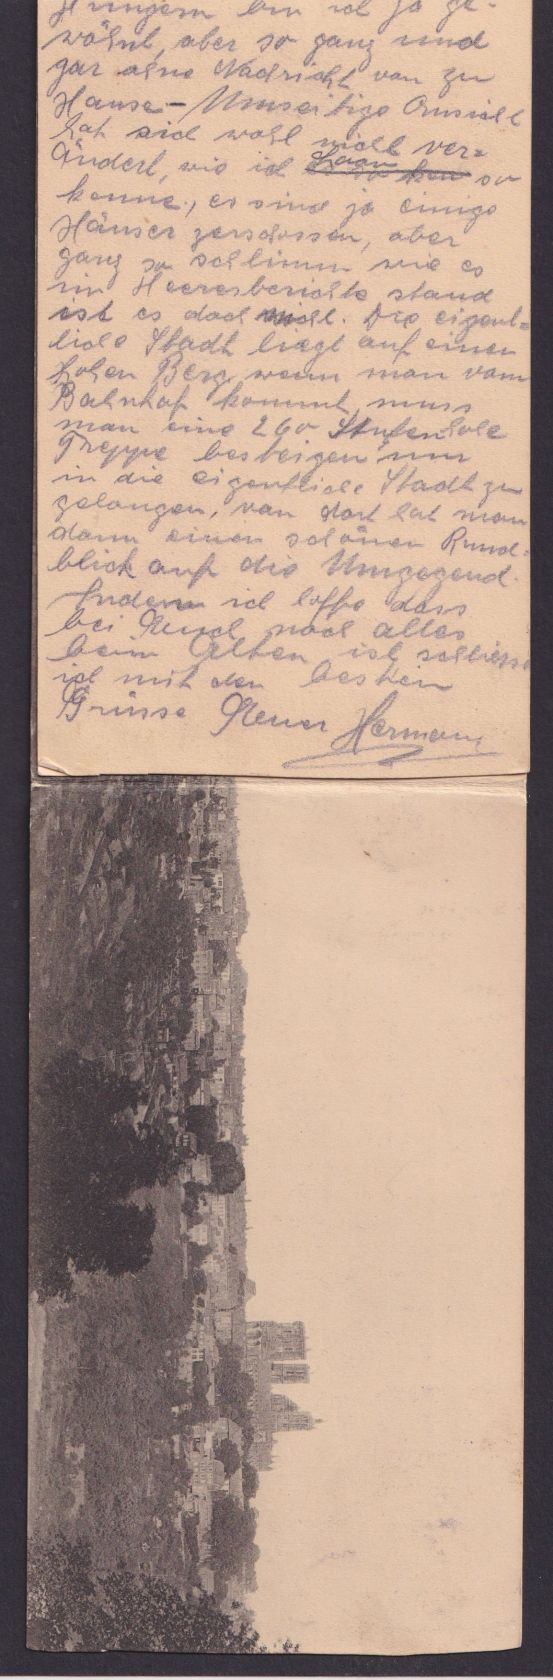 Hungern bin ich ja ge-
wöhnt, aber so ganz und
gar ohne Nachricht von zu
Hause - Umseitige Ansicht
hat sich wohl nicht ver=
ändert, wie ich so
kenne, es sind ja einige
Häuser zerschossen, aber
ganz so schlimm wie es
im Heeresberichte stand
ist es doch nicht. Die eigent=
liche Stadt liegt auf einen
hohen Berg, wenn man vom
Bahnhof kommt, muss
man eine 260 Stufen hohe
Treppe besteigen um
in die eigentliche Stadt zu
gelangen, von dort hat man
dann einen schönen Rund=
blick auf die Umgegend.
Indem ich hoffe dass
bei Euch noch alles
beim Alten ist schliesse
ich mit den besten
Grüsse Euer Hermann